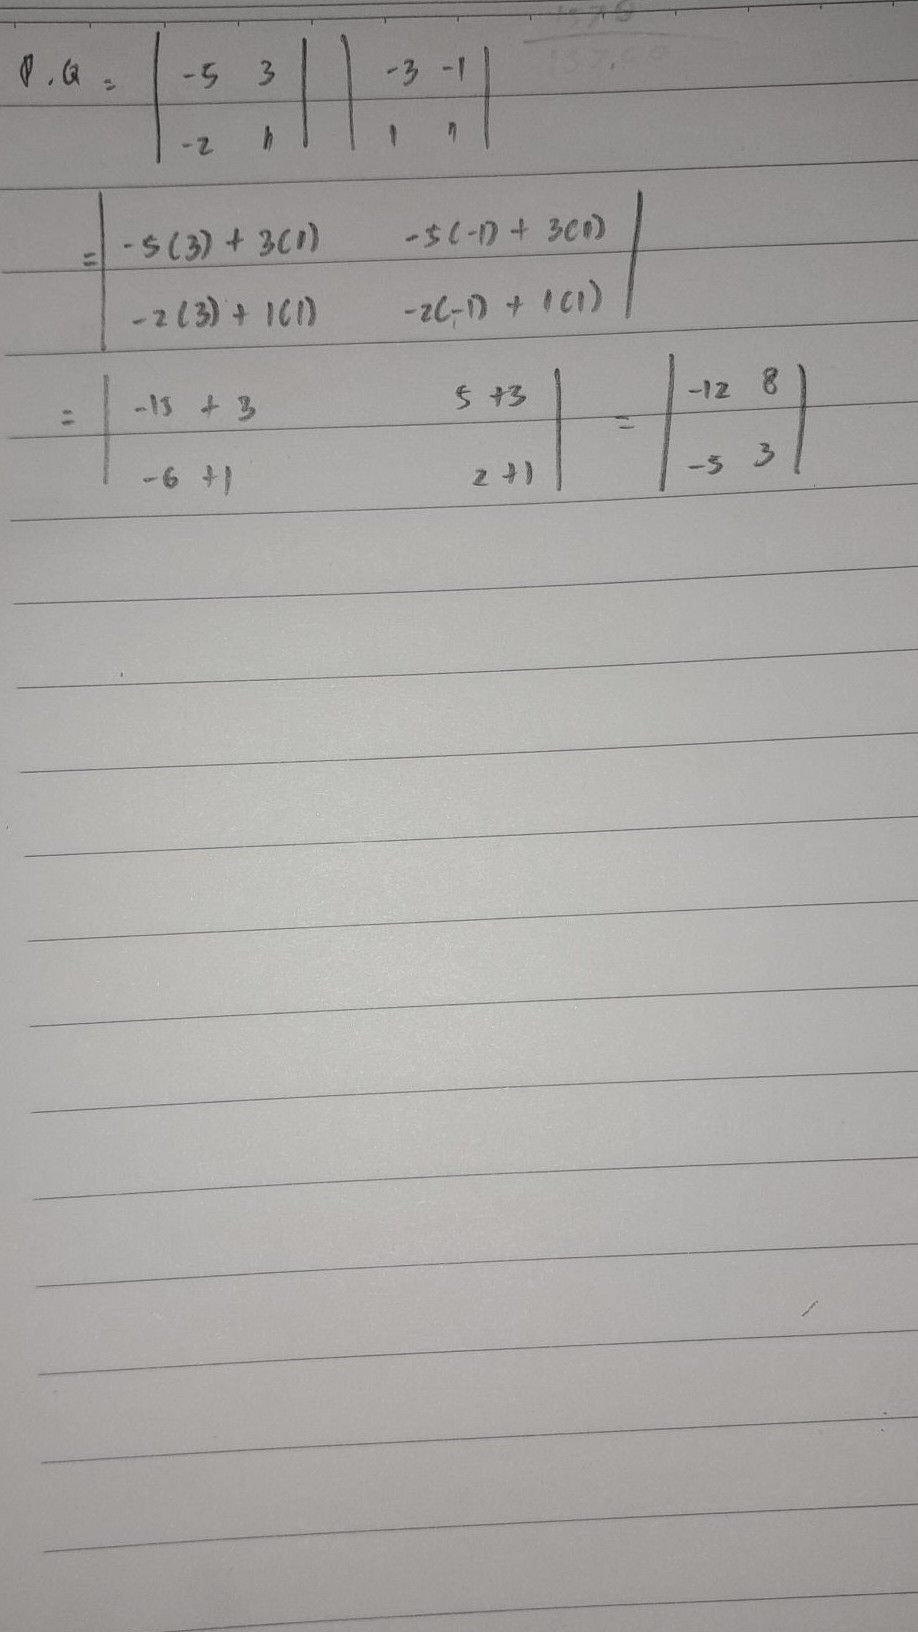 P . Q = | -5 3 | | -3 -1 |
| -2 1 | | 1 1 |
= | -5(3) + 3(1) -5(-1) + 3(1) |
| -2(3) + 1(1) -2(-1) + 1(1) |
= | -15 + 3 5 +3 | = | -12 8 |
| -6 +1 2 +1 | | -5 3 |